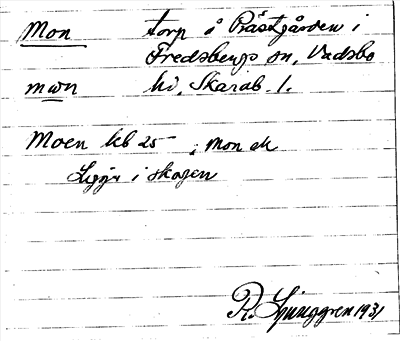 Mon torp å Prästgården i
Fredsbergs sn, Vadsbo
mωn hd, Skarab. l.
Moen kb 25 ; Mon ak
Ligger i skogen
R. Ljunggren 1931